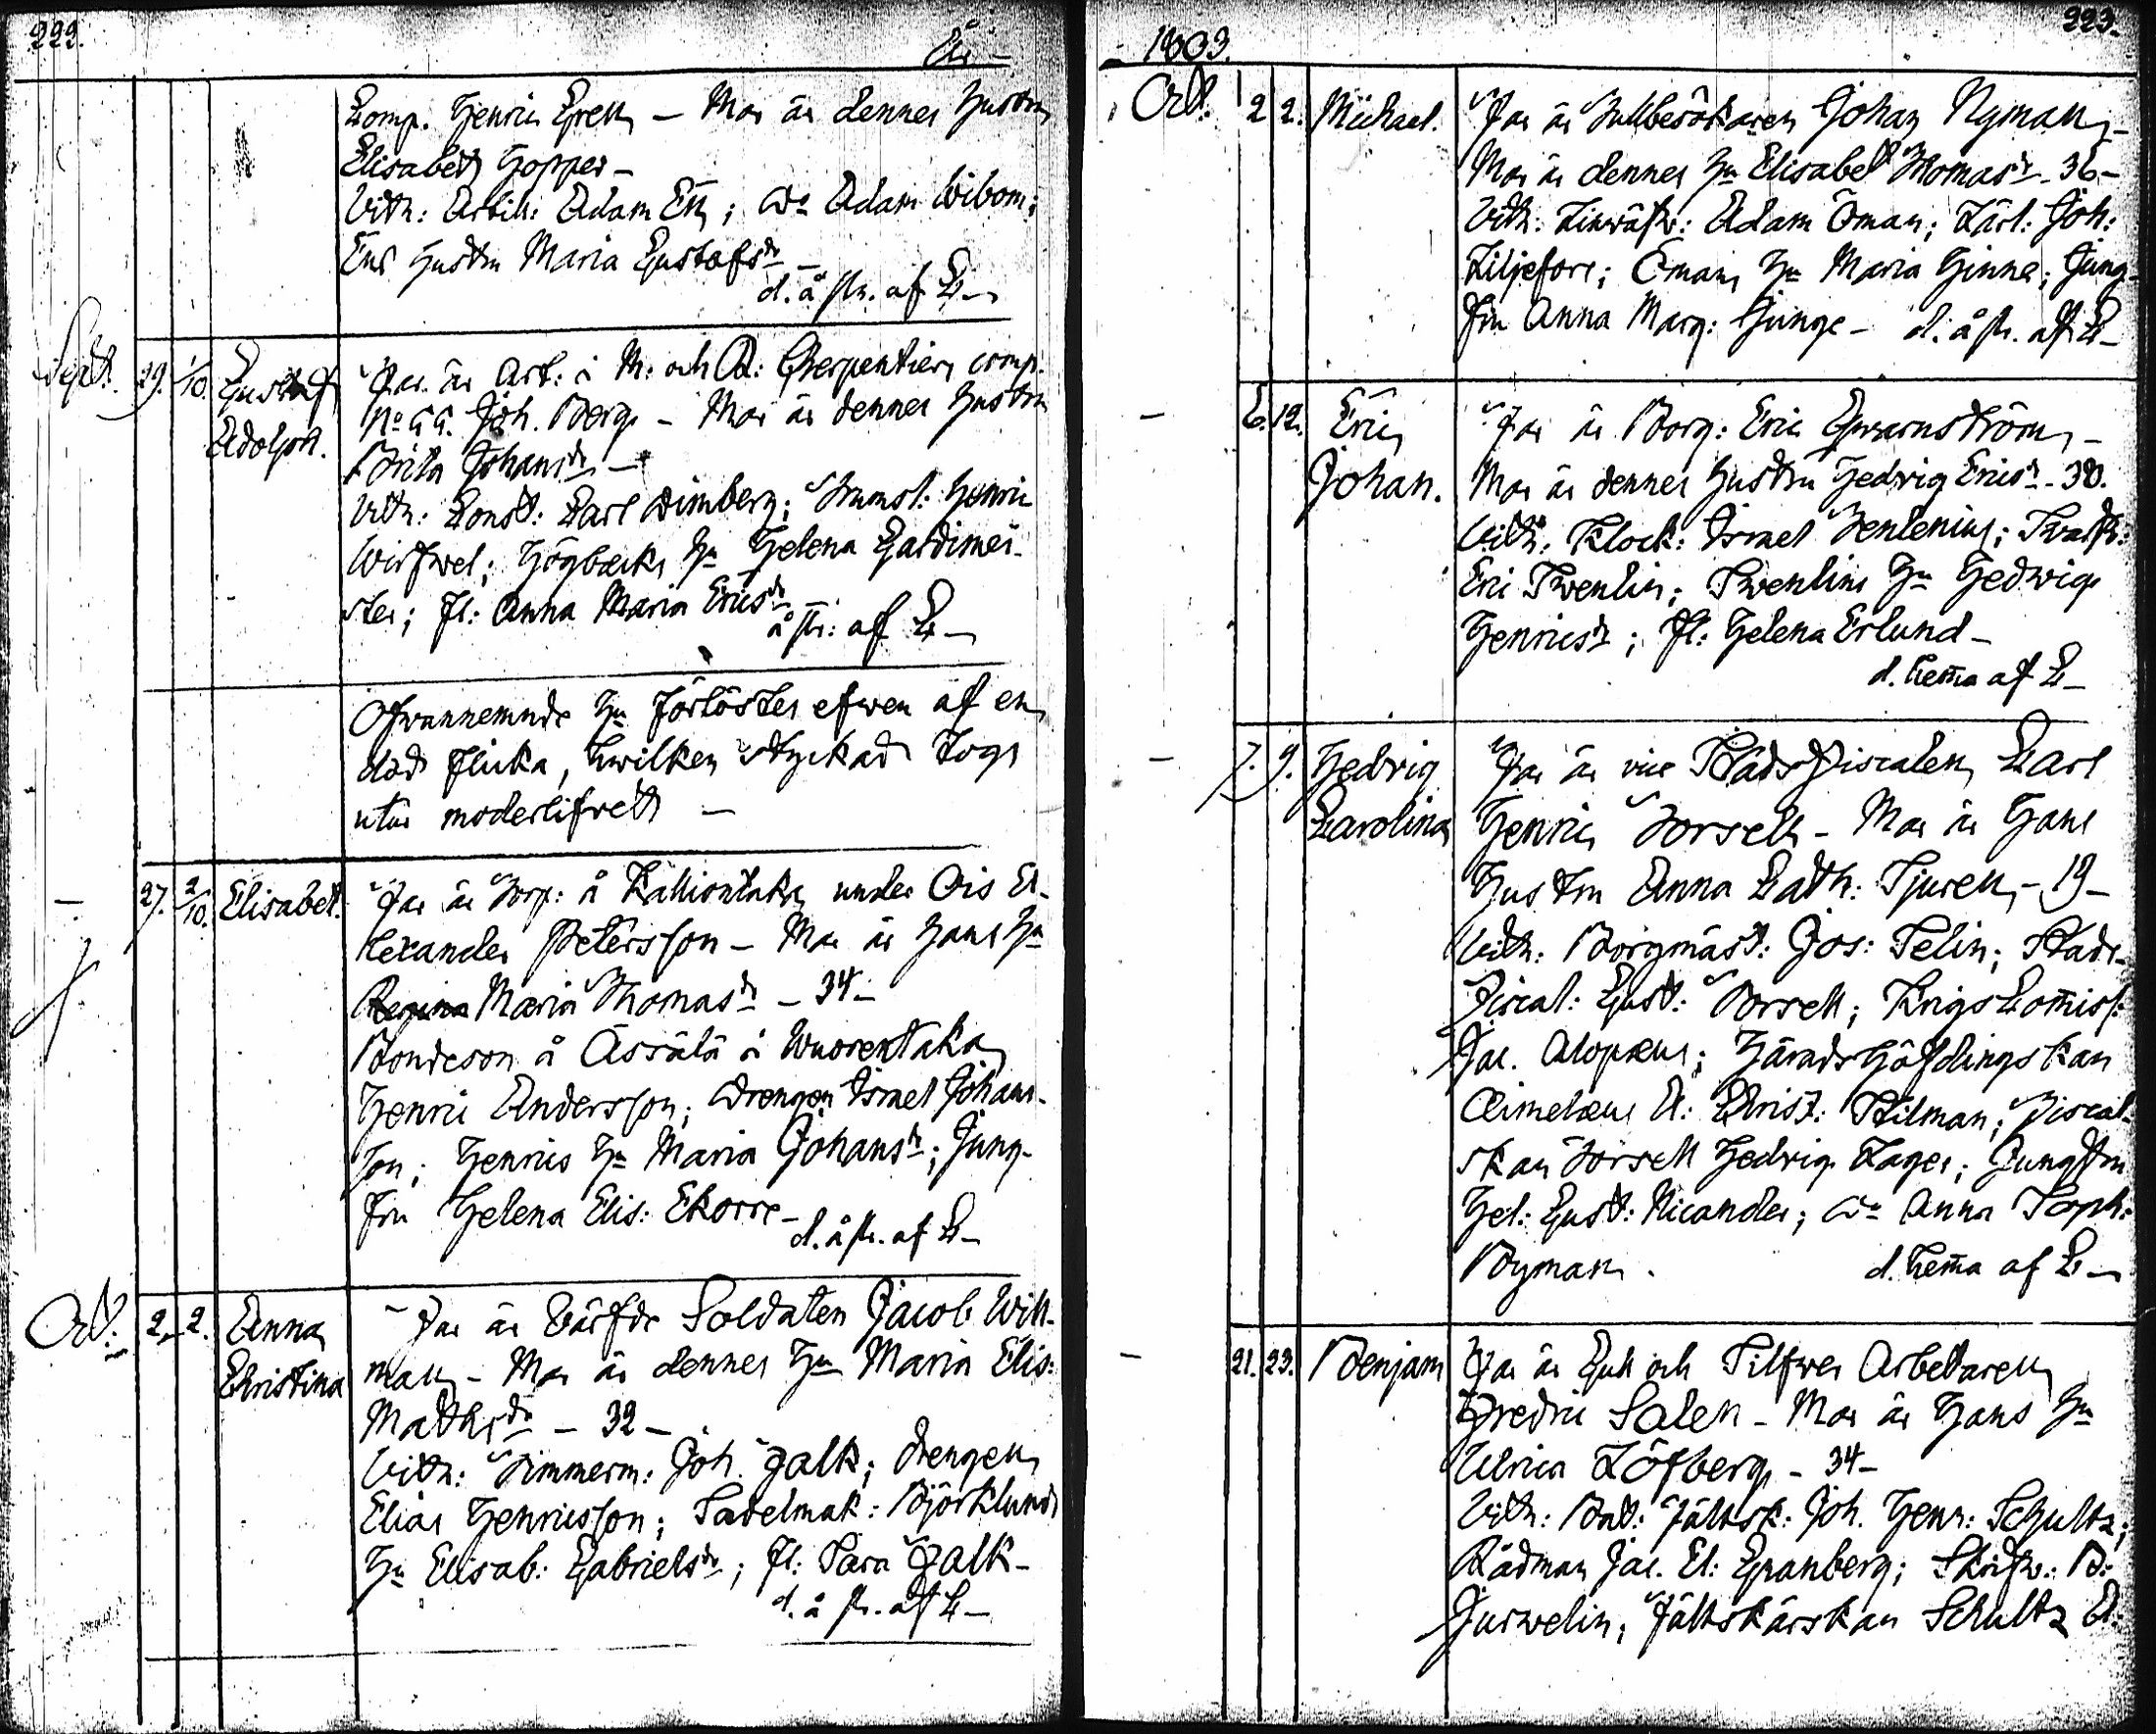 222.
År -
Comp. Henric Gren - Mor är dennes hustru
Elisabeth Hopper -
Vittn: Artill: Adam Ek; do Adam Wibom;
Eks hustru Maria Gustafsdr -
d. å st. af C -
Sept. 29. 1/10. Gustaf Adolph.
Far är Art: i M: och R: Charpentiers comp.
No 55. Joh. Berg - Mor är dennes hustru
Brita Johansdr -
Vittn: Const: Carl Dimberg; Trumsl: Henric
Wirfwel; Högbacks hu Helena Gardimei-
ster; fl: Anna Maria Ericsdr -
å st: af C -
Ofwannemnde hu förlöstes efwen af en
död flicka, hwilken styckad togs
utur moderlifvet -
- 27. 2/10. Elisabet.
Far är Torp: å Kalliontaka under Ois A-
lexander Petersson - Mor är hans hu
Maria Thomasdr - 34 -
Bondeson å Ässälä i Wuorentaka
Henric Andersson; Drengen Ismel Johans-
son; Henrics hu Maria Johansdr; Jung-
frn Helena Elis: Ekorre -
d. å st. af C -
Oct. 2. 2. Anna Christina
Far är värfde Soldaten Jacob Will-
man - Mor är dennes hu Maria Elis:
Mathsdr - 32 -
Vittn: Timmerm: Joh. Falk; drengen
Elias Henricsson; Sadelmak: Björklunds
hu Elisab: Gabrielsdr; fl: Sara Falk -
d. å st. af C -
- 1803.
223.
Oct. 2 2. Michael.
Far är Tullbesökaren Johan Nyman -
Mor är dennes hu Elisabet Thomasdr - 36 -
Vittn: Linwäfw: Adam Öman; Lärl: Joh:
Liljefors; Ömans hu Maria Hinna; Jung-
frn Anna Marg: Ljunge - d. å st. af C -
- 6. 12. Eric Johan.
Far är Borg: Eric Qwarnström -
Mor är dennes hustru Hedvig Ericsdr - 30.
Vittn: Klock: Ismel Tenlenius; Swarfw:
Eric Swenlin; Swenlins hu Hedwig
Henricsdr; fl: Helena Erlund -
d. hemma af C -
- 7. 9. Hedvig Carolina
Far är vice Stads Fiscalen Carl
Henric Forsell - Mor är hans
hustru Anna Cath: Tjuren - 19 -
Vittn: Borgmäst: Jos: Selin; Stads-
Fiscal: Gust: Forsell; Krigs Commiss:
Jac. Alopæus; Häradshöfdingskan
Aimelæus A: Christ: Stilman; Fiscal-
skan Forsell Hedvig Lager; Jungfrn
Hel: Gust: Nicander; do Anna Soph:
Byman. d. hemma af C -
- 21. 23. Benjam
Far är Gull och Silfwer Arbetaren
Fredric Salen - Mor är hans hu
Ulrica Löfberg - 34 -
Vittn: Bat: Fältsk: Joh. Henr: Schultz;
Rådman Jac. El: Granberg; Skrifw: B:
Jurwelin; Fältskärskan Schultz A: